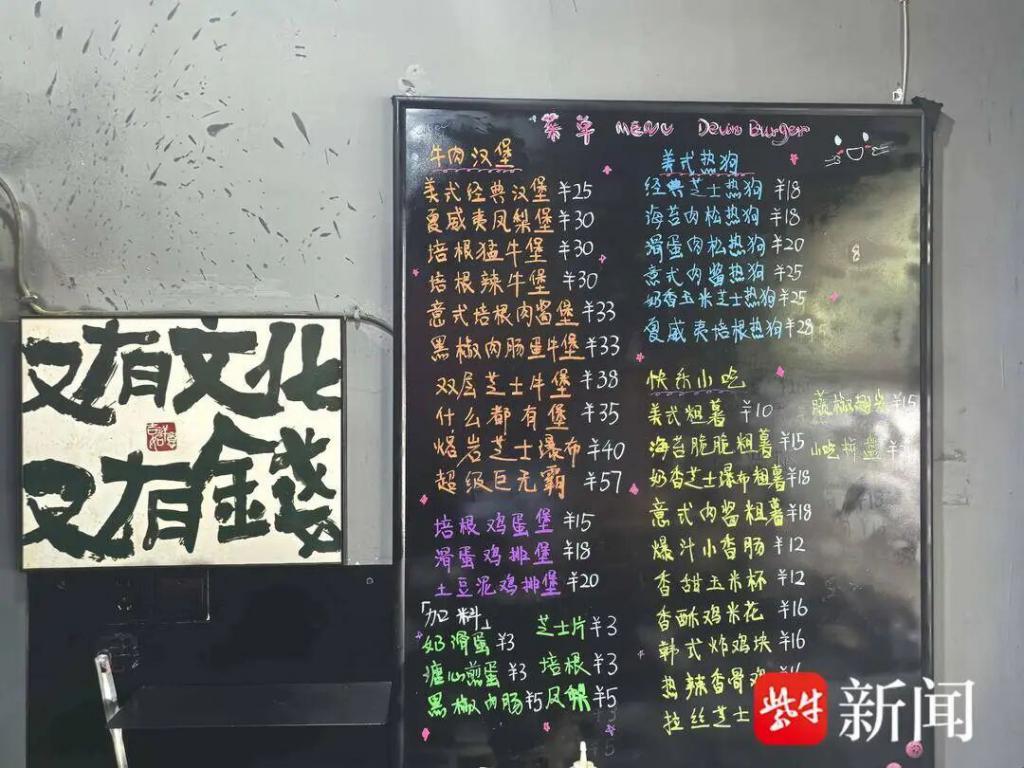 又有文化
又有錢
菜单 MENU Devin Burger
牛肉汉堡
美式经典汉堡 ¥25
夏威夷凤梨堡 ¥30
培根猛牛堡 ¥30
培根辣牛堡 ¥30
意式培根肉酱堡 ¥33
黑椒肉肠蛋牛堡 ¥33
双层芝士牛堡 ¥38
什么都有堡 ¥35
熔岩芝士瀑布 ¥40
超级巨无霸 ¥57
培根鸡蛋堡 ¥15
滑蛋鸡排堡 ¥18
土豆泥鸡排堡 ¥20
「加料」
奶滑蛋 ¥3 芝士片 ¥3
溏心煎蛋 ¥3 培根 ¥3
黑椒肉肠 ¥5 凤梨 ¥5
美式热狗
经典芝士热狗 ¥18
海苔肉松热狗 ¥18
滑蛋肉松热狗 ¥20
意式肉酱热狗 ¥25
奶香玉米芝士热狗 ¥25
夏威夷培根热狗 ¥28
快乐小吃
美式粗薯 ¥10
海苔脆脆粗薯 ¥15
奶香芝士瀑布粗薯 ¥18
意式肉酱粗薯 ¥18
爆汁小香肠 ¥12
香甜玉米杯 ¥12
香酥鸡米花 ¥16
韩式炸鸡块 ¥16
热辣香骨鸡
拉丝芝士
藤椒翅尖 ¥15
小吃拼盘 ¥
紫牛新闻